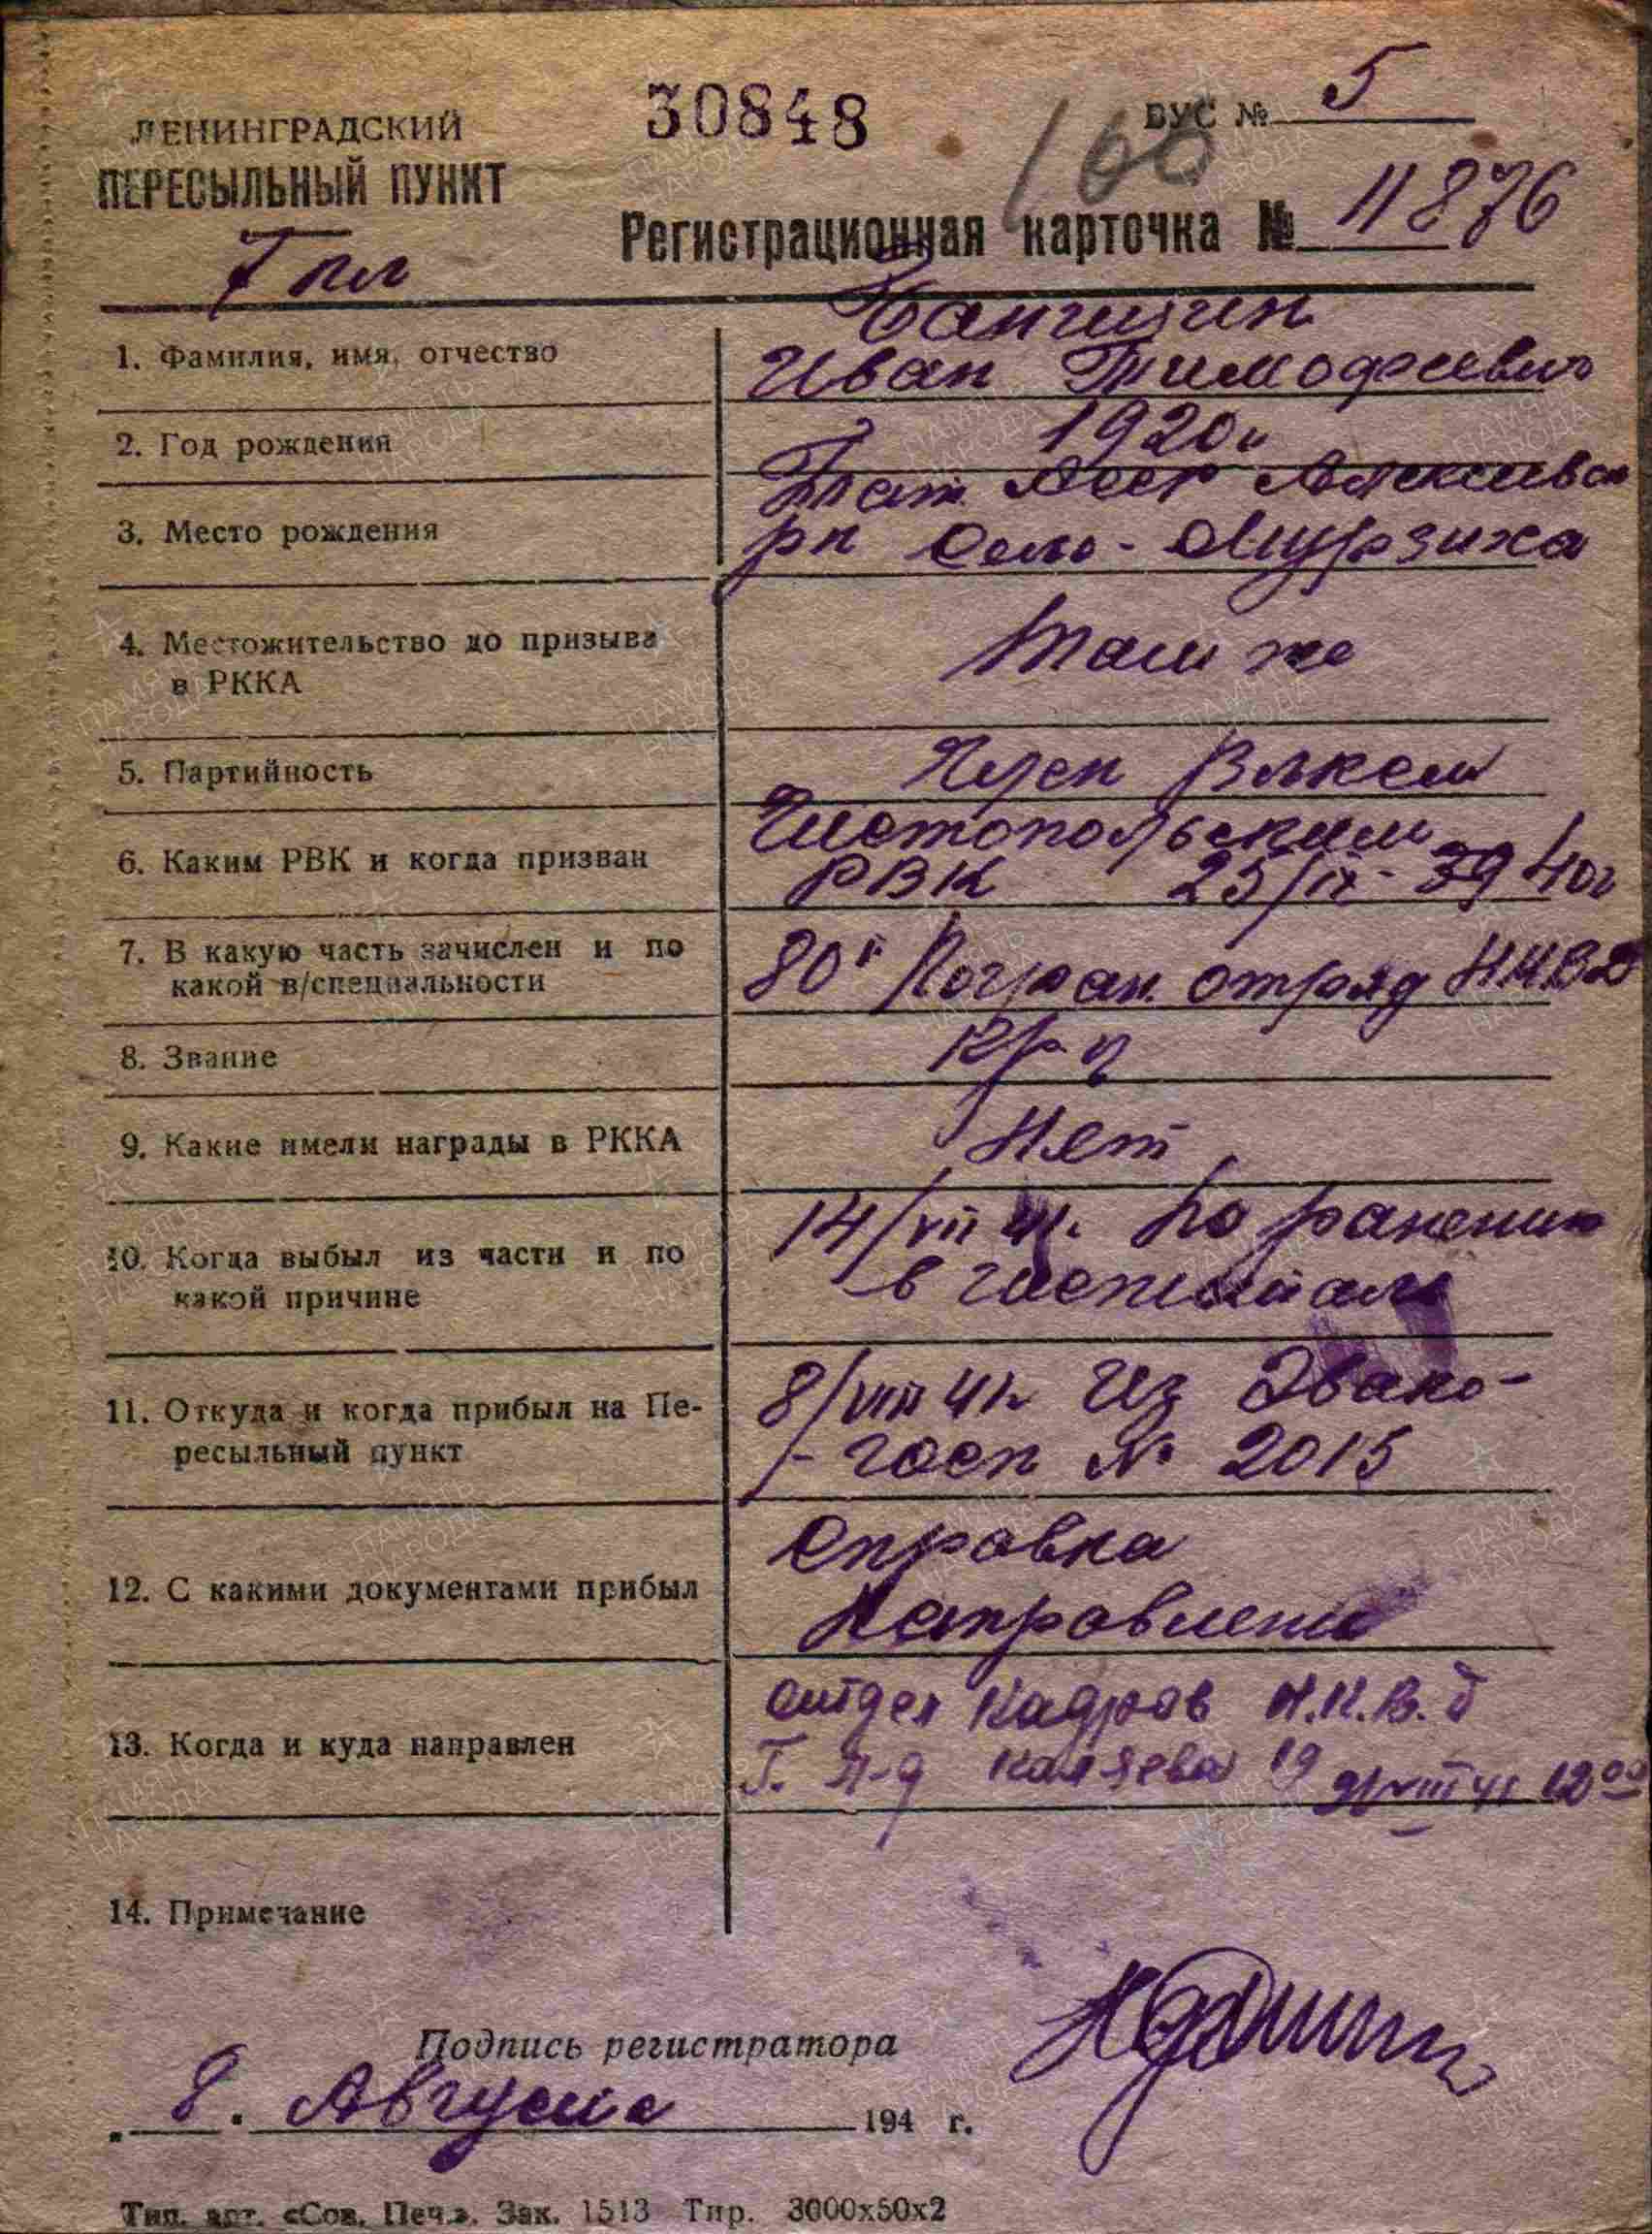 ЛЕНИНГРАДСКИЙ
ПЕРЕСЫЛЬНЫЙ ПУНКТ
30848
ВУС № 5
160
Регистрационная карточка № 11876
1. Фамилия, имя, отчество
Иван Тимофеевич
2. Год рождения 1920г
3. Место рождения
Тат. АССР Алексеевск
рн Село - Мурзиха
4. Местожительство до призыва
в РККА
Там же
5. Партийность Член ВЛКСМ
6. Каким РВК и когда призван
Чистопольским
РВК 25/IX- 39 40г
7. В какую часть зачислен и по
какой в/специальности
80й Погран. отряд НКВД
8. Звание кр-ц
9. Какие имели награды в РККА Нет
10. Когда выбыл из части и по
какой причине
14/VII 41г. По ранению
в госпиталь
11. Откуда и когда прибыл на Пе-
ресыльный пункт
8/VIII 41г Из Эвако-
- госп № 2015
12. С какими документами прибыл
Справка
Направлени
13. Когда и куда направлен
отдел кадров Н.К.В.Д
Г. Л-д Каляева 19 9/VIII 41 12 00
14. Примечание
Подпись регистратора
8. Августа 194 г.
Тип. арт. «Сов. Печ.». Зак. 1513 Тир. 3000х50х2
ПАМЯТЬ НАРОДА